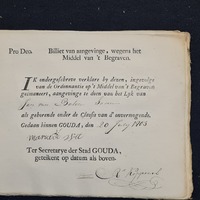 Pro Deo. Billiet van aangevinge, wegens het
Middel van 't Begraven.
IK ondergeschreve verklare by dezen, ingevolge
van de Ordonnantie op 't Middel van 't Begraven
geëmaneert, aangevinge te doen van het Lyk van
Jan van
als gehorende onder de Classis van d'onvermogende.
Gedaan binnen GOUDA, den 20 July 1803
Ter Secretarye der Stad GOUDA,
geteikent op datum als boven.